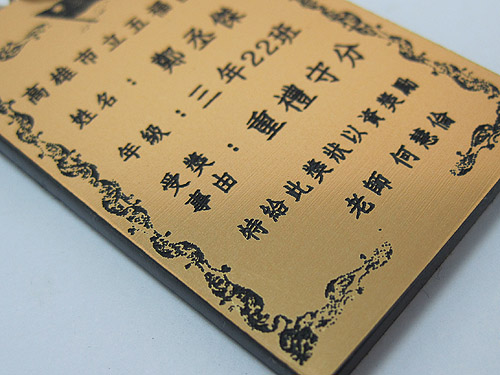 高雄市立五福
姓名：鄭丞傑
年級：三年22班
受獎事由：重禮守分
特給此獎狀以資獎勵
老師 何慧倫